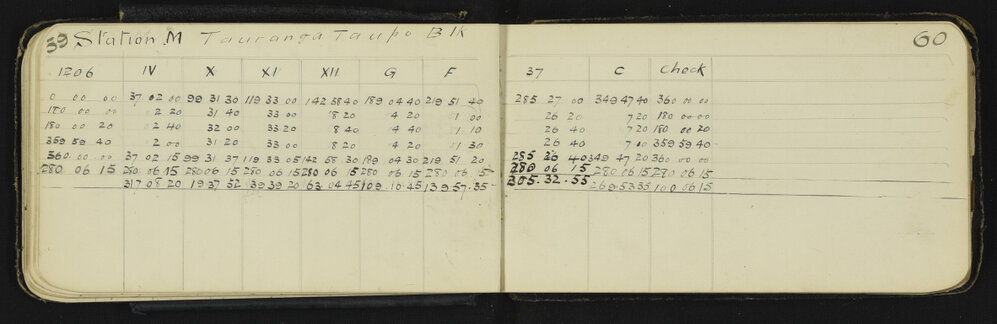 59 Station M Tauranga Taupo Blk 60
1206 IV X XI XII G F 37 C Check
0 00 00 37 02 00 99 31 30 119 33 00 142 58 40 189 04 40 219 51 40 285 27 00 349 47 40 360 00 00
180 00 00 2 20 31 40 33 00 8 20 4 20 1 00 26 20 7 20 180 00 00
180 00 20 2 40 32 00 33 20 8 40 4 40 1 10 26 40 7 20 180 00 20
359 59 40 2 00 31 20 33 00 8 20 4 20 1 30 26 40 7 00 359 59 40
360 00 00 37 02 15 99 31 37 119 33 05 142 58 30 189 04 30 219 51 20 285 26 40 349 47 20 360 00 00
280 06 15 280 06 15 280 06 15 280 06 15 280 06 15 280 06 15 280 06 15 280 06 15 280 06 15 280 06 15
317 08 20 19 37 52 39 39 20 63 04 45 109 10 45 139 57 35 305 32 55 269 53 35 100 06 15